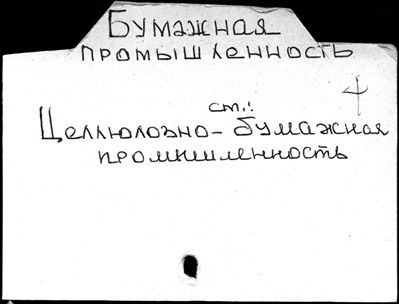 Бумажная
промышленность
ст.:
Целлюлозно-бумажная
промышленность